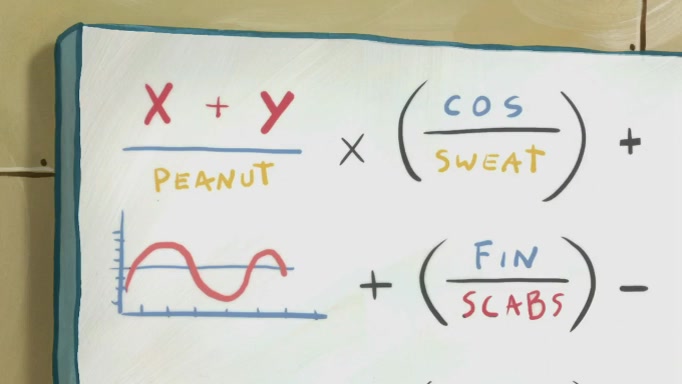 X + Y
PEANUT
× (COS
SWEAT) +
+ (FIN
SCABS) −